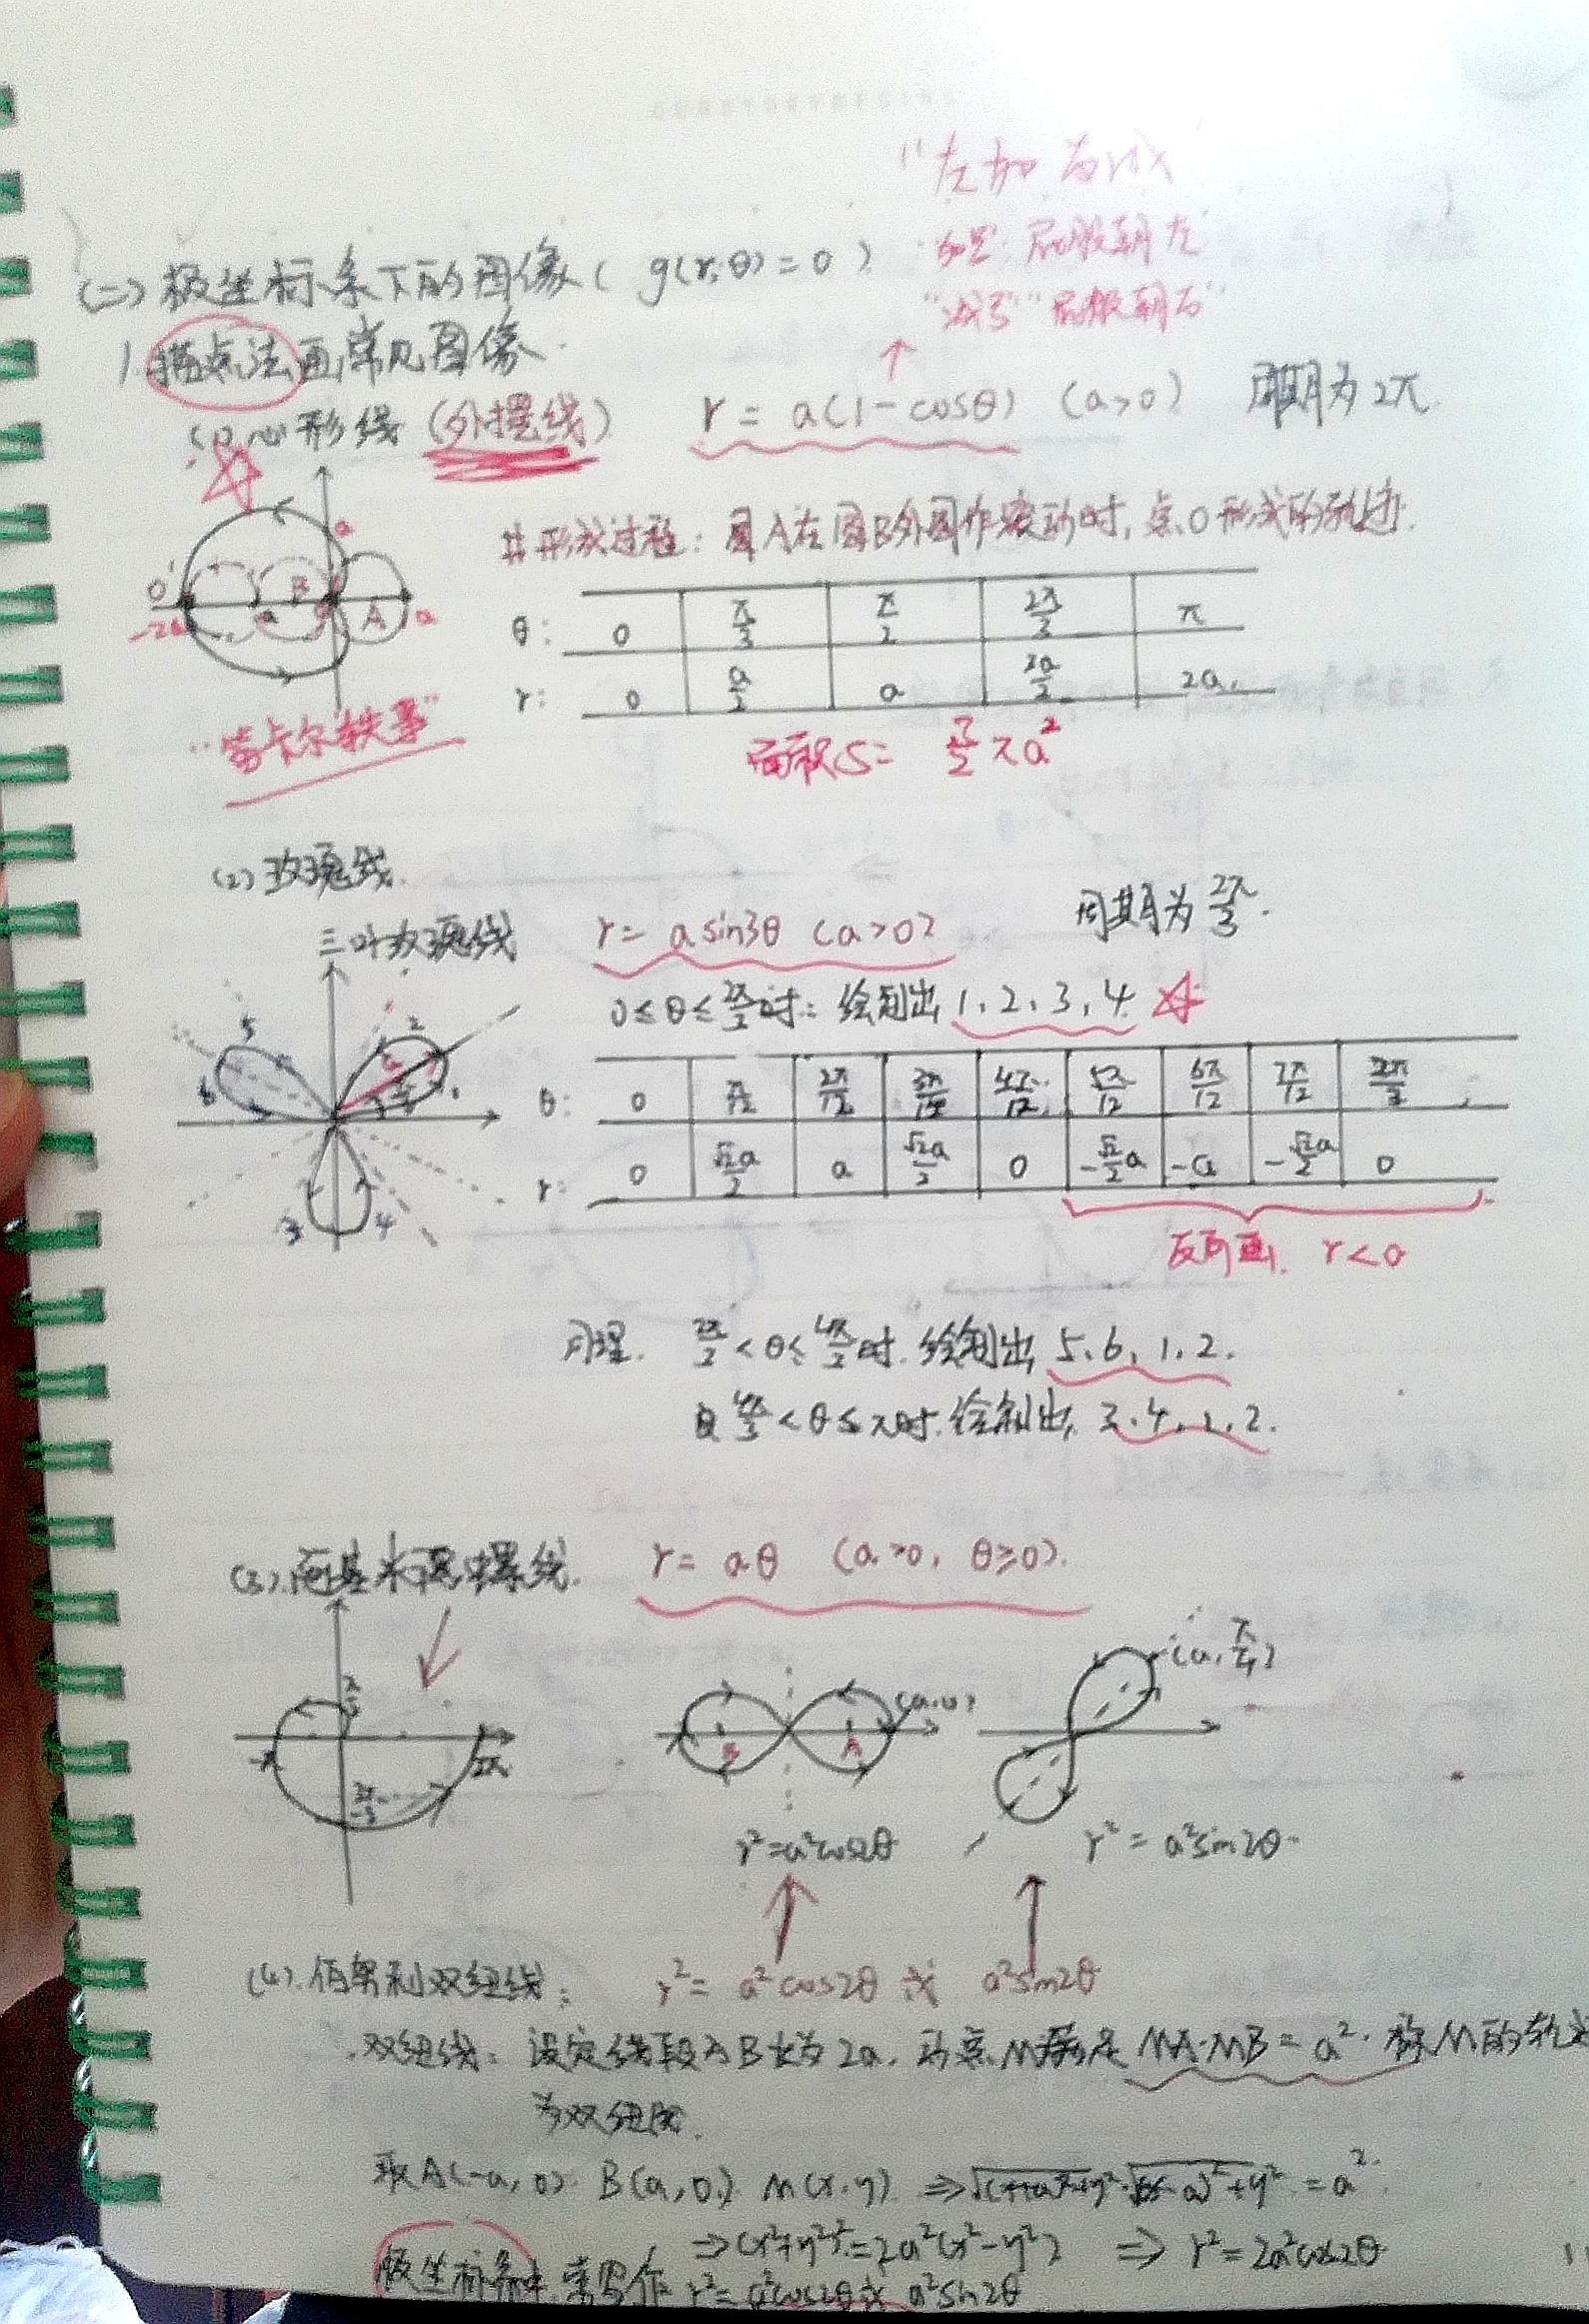 "左加右减"
"加号"屁股朝左
"减号"屁股朝右
(二) 极坐标系下的图像 ( g(r,θ)=0 )
1. 描点法画常见图像
(1) 心形线 (外摆线) r = a(1-cosθ) (a>0) 周期为2π
形成过程: 圆A在圆B外围作滚动时, 点O形成的轨迹.
O' -2a a B A a a
θ: 0 π/3 π/2 2π/3 π
r: 0 a/2 a 3a/2 2a
"笛卡尔轶事"
面积S = 3/2 πa²
(2) 玫瑰线.
三叶玫瑰线 r = a sin3θ (a>0) 周期为 2π/3.
0≤θ≤2π/3时: 绘制出 1、2、3、4
5 2 6 1 3 4
θ: 0 π/12 2π/12 3π/12 4π/12 5π/12 6π/12 7π/12 2π/3
r: 0 √2a/2 a √2a/2 0 -√2/2a -a -√2a/2 0
反向画, r<0
同理. 2π/3<θ≤4π/3时. 绘制出 5、6、1、2.
4π/3<θ≤ 时. 绘制出 3、4、
(3) 阿基米德螺线. r = aθ (a>0, θ≥0).
π/2 2π (a,0) B A (a, π/4)
r²=a²cos2θ / r² = a²sin2θ
(4). 伯努利双纽线: r² = a²cos2θ 或 a²sin2θ
双纽线: 设定线段AB长为2a, 动点M满足 MA·MB = a². 称M的轨迹
为双纽线.
取A(-a,0) B(a,0) M(x,y) ⇒ √(x+a)²+y²·√(x-a)²+y² = a².
⇒ (x²+y²)²=2a²(x²-y²) ⇒ r²=2a²cos2θ
极坐标系中 常写作 r²=a²cos2θ或 a²sin2θ